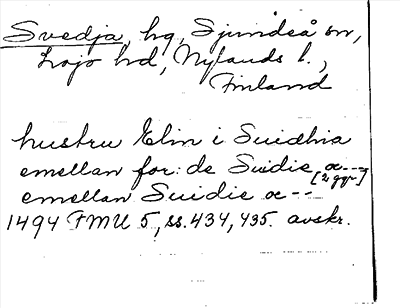 Svedja, hg, Sjundeå sn,
Lojo hd, Nylands l.,
Finland
hustru Elin i Suidhia
emellan for: de Suidie, oc---
[2 ggr]
emellan Suidie oc --
1494 FMU 5, ss. 434, 435. avskr.